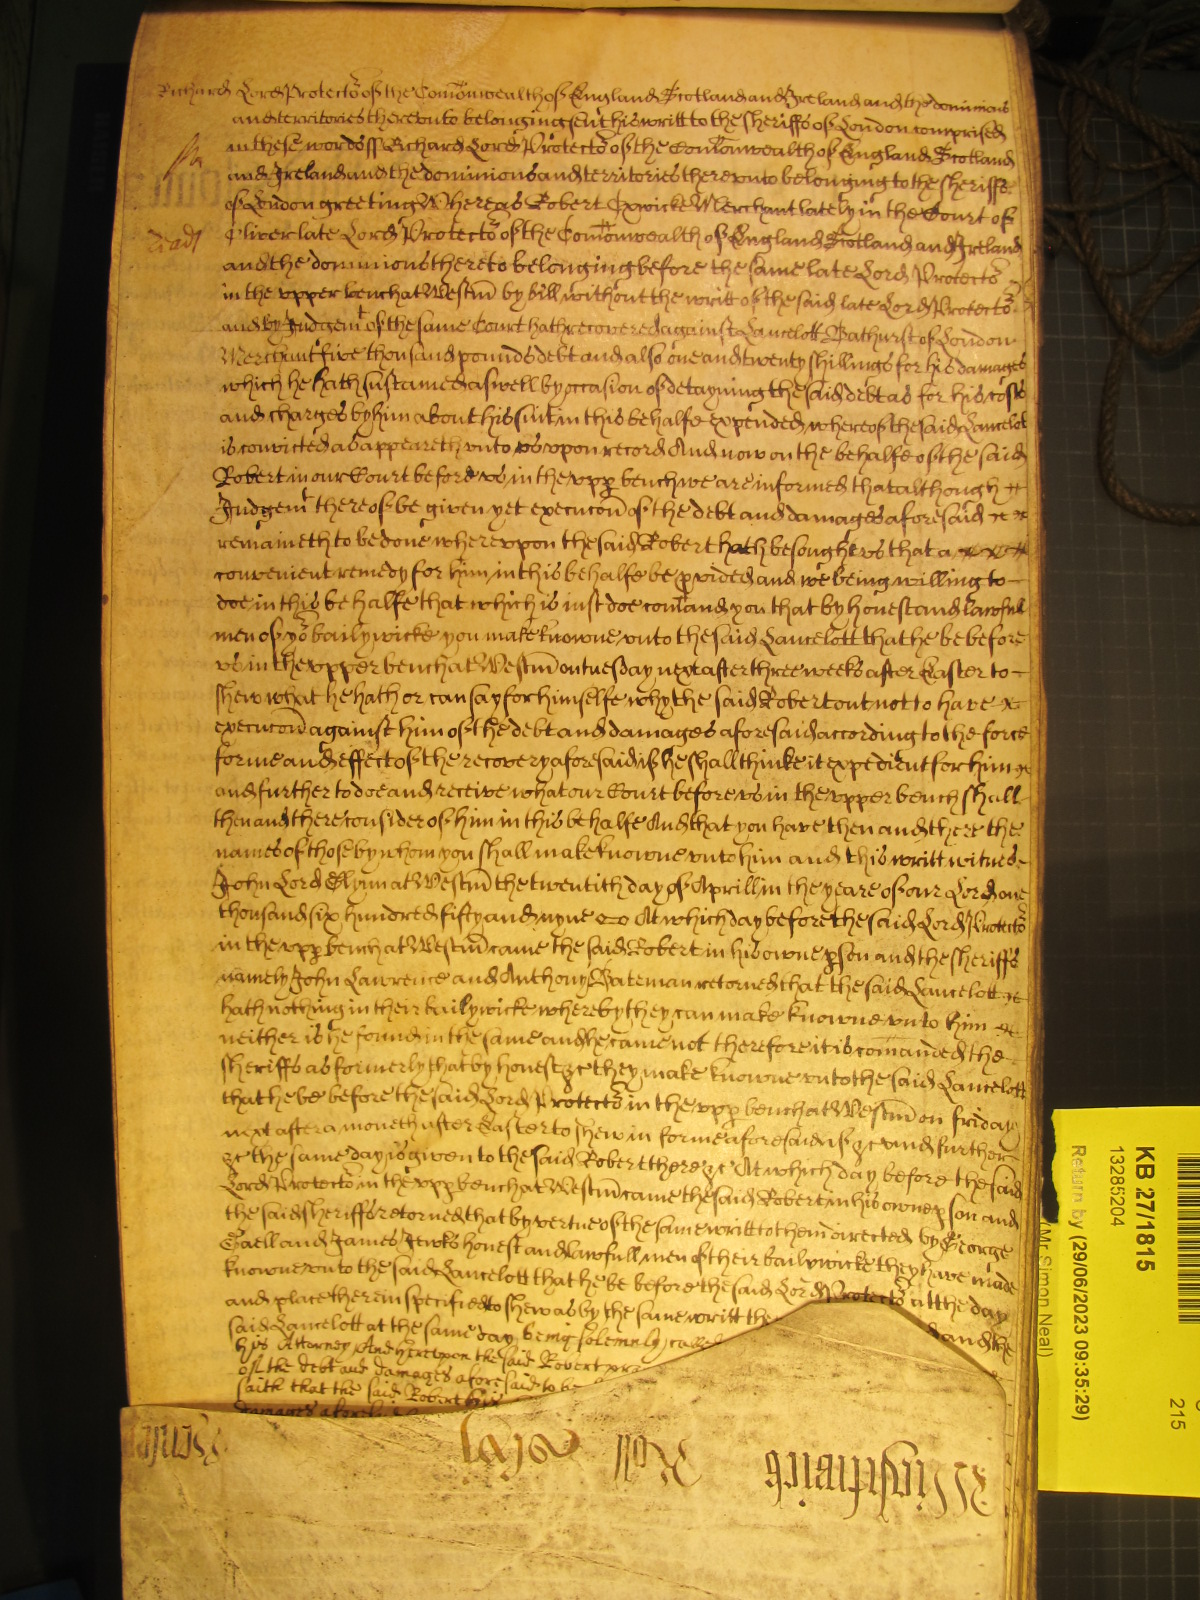 Richard Lord Protector of the Comonwealth of England Scotland and Ireland and the dominions
and territories thereunto belonging sent his writt to the sheriffs of London comprised
in these words ss Richard Lord Protector of the Comonwealth of England Scotland
and Ireland and the dominions and territories thereunto belonging to the sheriffs
of London greeting Whereas Robert Exwicke Merchant lately in the Court of
Oliver late Lord Protector of the Comonwealth of England Scotland and Ireland
and the dominions thereto belonging before the same late Lord Protector
in the upper bench at Westm by bill without the writt of the said late Lord Protector
and by Judgemt of the same Court hath recovered against Lancelott Bathurst of London
Merchant five thousand pounds debt and also one and twenty shillings for his damages
which he hath susteined aswell by occasion of detayning the said debt as for his costs
and charges by him about his suit in this behalfe expended whereof the said Lancelot
is convicted as appeareth unto us upon record And now on the behalfe of the said
Robert in our Court before us in the upp bench we are informed that although
Judgemt thereof be given yet execucon of the debt and damages aforesaid
remaineth to be done whereupon the said Robert hath besought us that a
convenient remedy for him in this behalfe be pvided and we being willing to
doe in this behalfe that which is just doe comand you that by honest and lawfull
men of yor bailywicke you make knowne unto the said Lancelott that he be before
us in the upper bench at Westm on tuesday next after three weeks after Easter to
shew what he hath or can say for himselfe why the said Robert out not to have
execucon against him of the debt and damages aforesaid according to the force
forme and effect of the recovery aforesaid if he shall thinke it expedient for him
and further to doe and receive what our Court before us in the upper bench shall
then and there consider of him in this behalfe And that you have then and there the
names of those by whom you shall make knowne unto him and this writt witnes
John Lord Glynn at Westm the twentith day of Aprill in the yeare of our Lord one
thousand six hundred fifty and nyne At which day before the said Lord Protector
in the upp bench at Westm came the said Robert in his owne pson and the sheriffs
namely John Lawrence and Anthony Bateman retorned that the said Lancelott
hath nothing in their bailywicke whereby they can make knowne unto him
neither is he found in the same and he came not therefore it is comanded the
sheriffs as formerly that by honest &c they make knowne unto the said Lancelott
that he be before the said Lord Protector in the upp bench at Westm on friday
next after a moneth after Easter to shew in forme aforesaid if &c and further
&c the same day is given to the said Robert there &c At which day before the said
Lord Protector in the upp bench at Westm came the said Robert in his owne pson and
the said sheriffs retorned that by vertue of the same writt to them directed by George
and James honest and lawfull men of their bailywicke they have made
knowne unto the said Lancelott that he be before the said Lord Protector att the day
and place therein specified to shew as by the same writt the
said Lancelott at the same day being solemnly called and the
his Attorney And hereupon the said Robert
of the debt and damages aforesaid to be
saith that the said Robert
damages
Roll
KB 27/1815
13285204
Return by (29/06/2023 09:35:29)
(Mr Simon Neal)
215